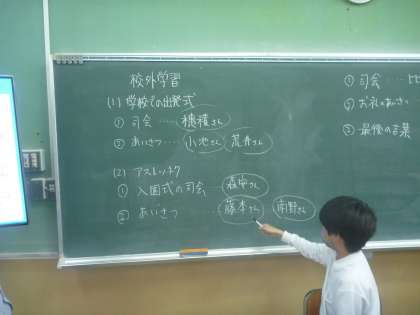 校外学習
(1) 学校での出発式
① 司会 …… 穂積さん
② あいさつ …… 小池さん 荒舟さん
(2) アスレッチク
① 入園式の司会 …… 森中さん
② あいさつ …… 藤本さん 南野さん
① 司会 ……
② お礼のあいさつ
③ 最後の言葉